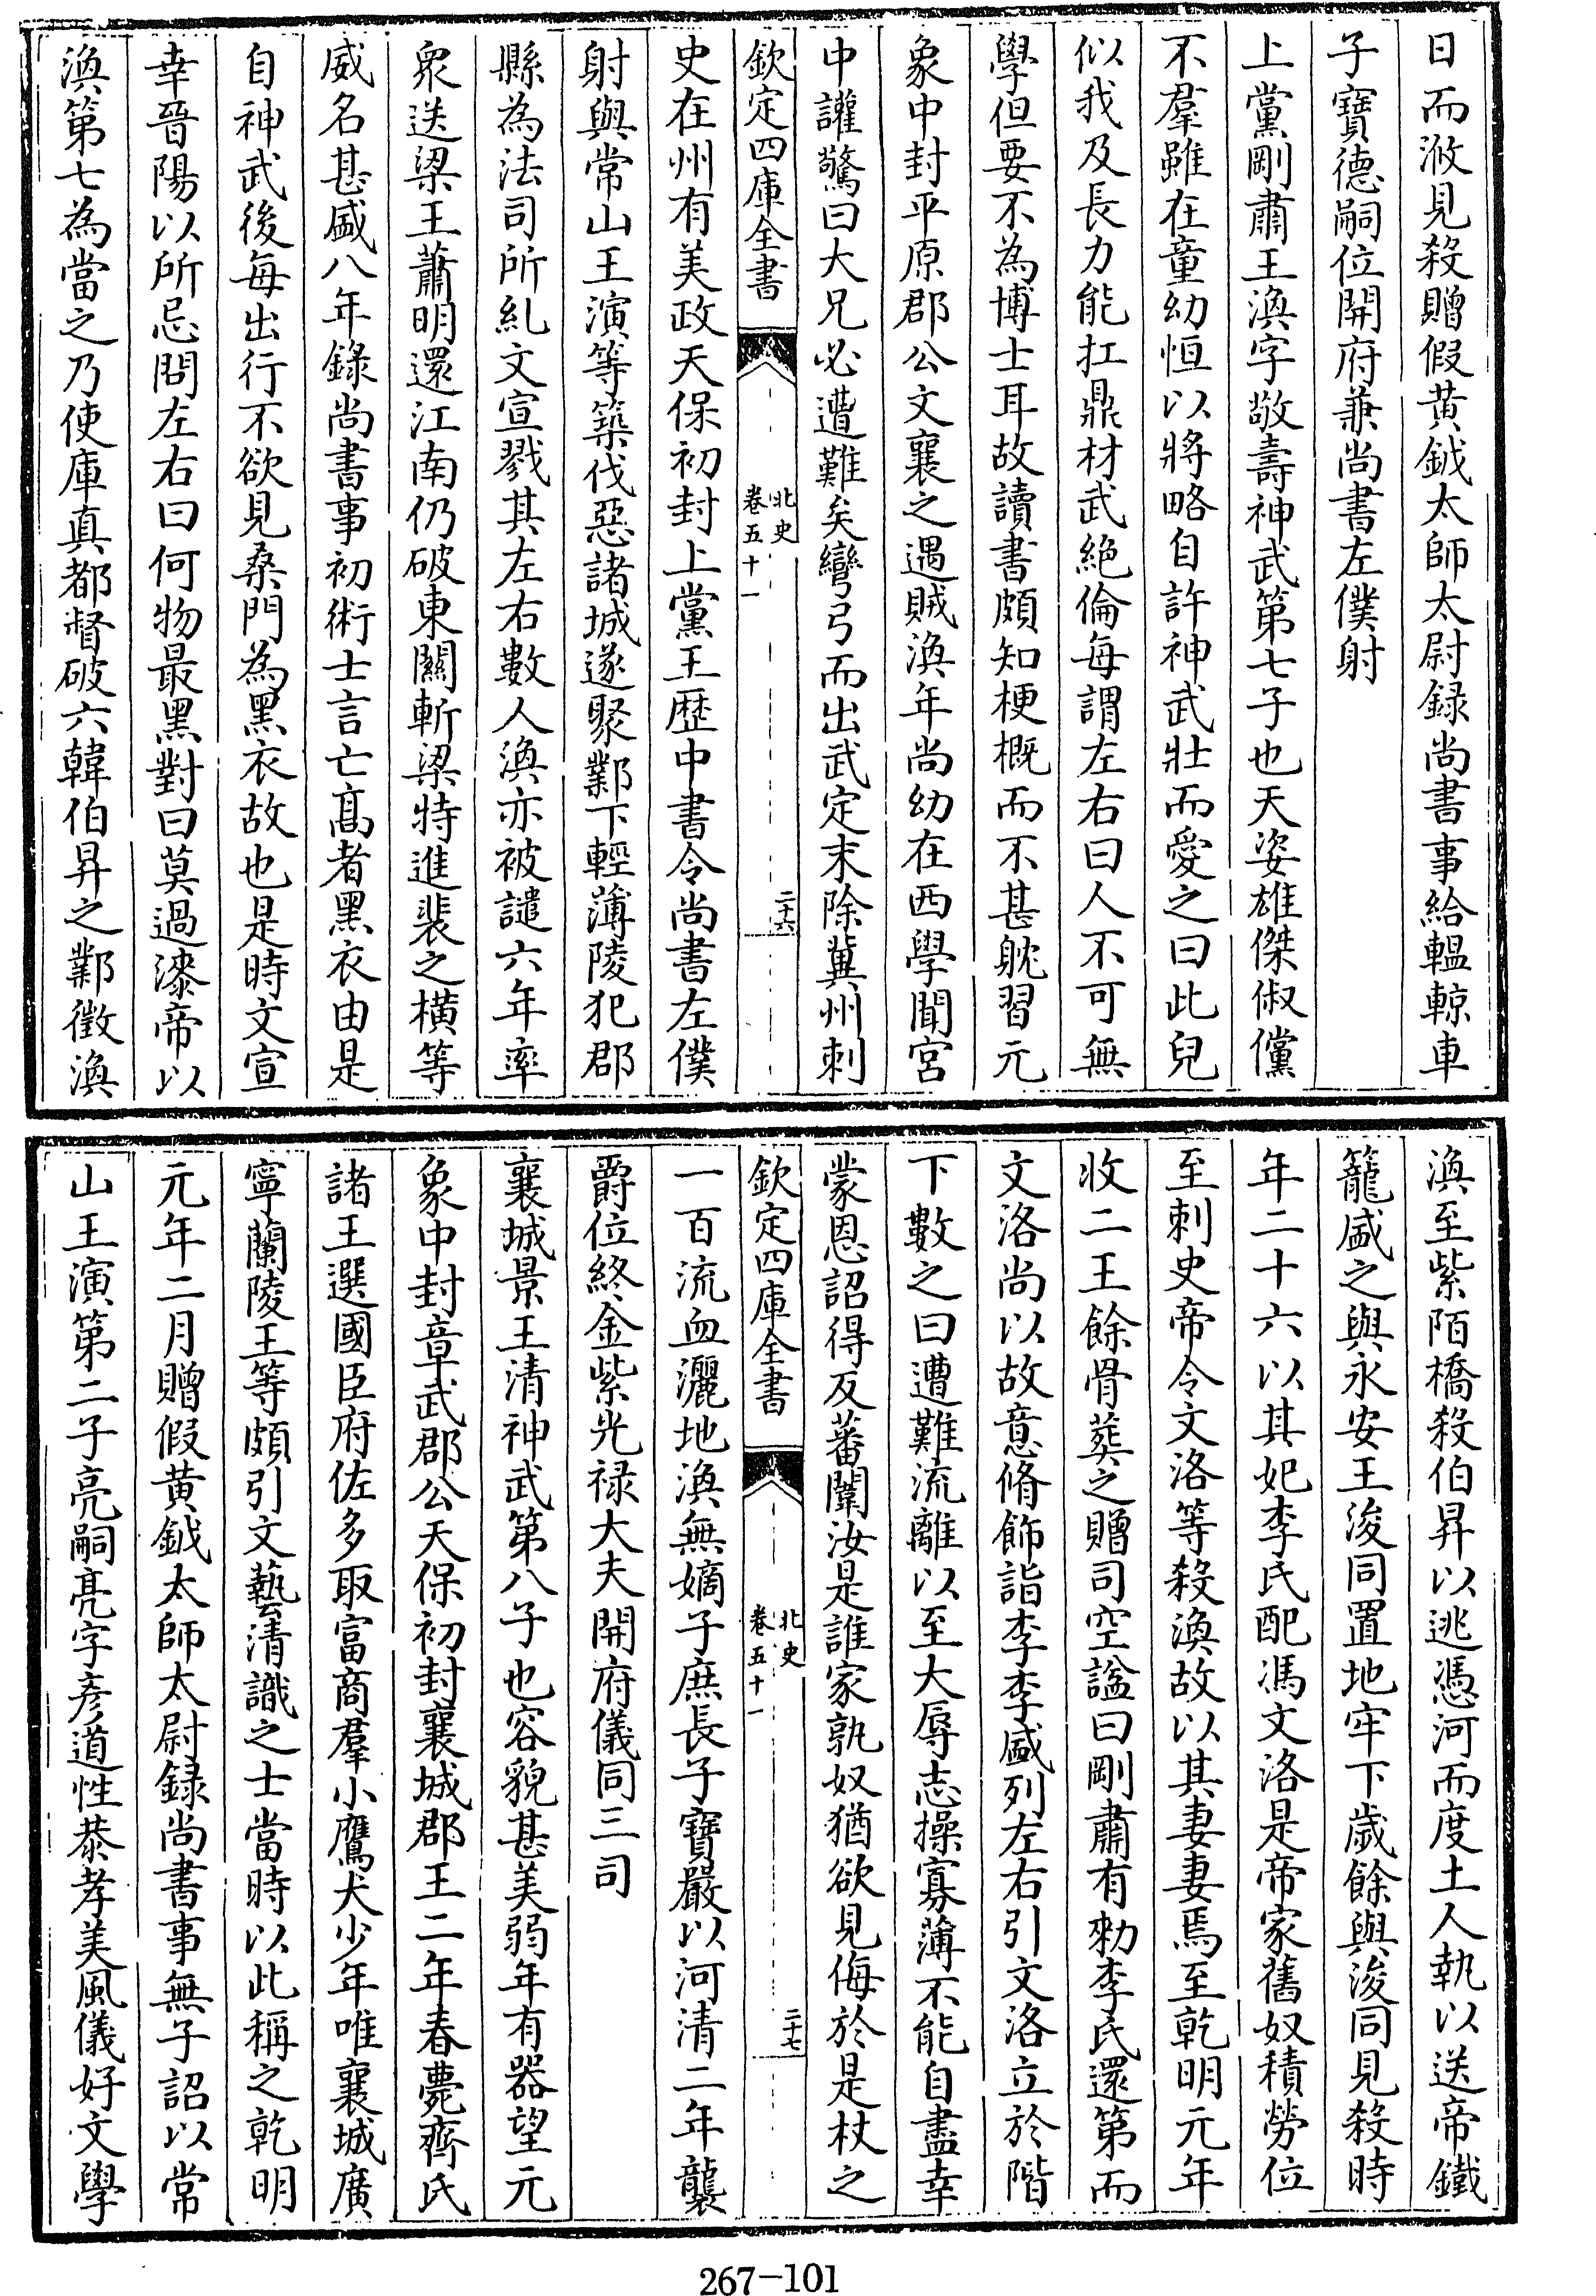 日而浟見殺贈假黄鉞太師太尉録尚書事給轀輬車
子寳德嗣位開府兼尚書左僕射
上黨剛肅王渙字敬壽神武第七子也天姿雄傑俶儻
不羣雖在童幼恒以將略自許神武壯而愛之曰此兒
似我及長力能扛鼎材武絶倫每謂左右曰人不可無
學但要不為博士耳故讀書頗知梗概而不甚躭習元
象中封平原郡公文襄之遇賊渙年尚幼在西學聞宮
中讙驚曰大兄必遭難矣彎弓而出武定末除冀州刺
欽定四庫全書
北史
卷五十一
二十六
史在州有美政天保初封上黨王歴中書令尚書左僕
射與常山王演等築伐惡諸城遂聚鄴下輕薄陵犯郡
縣為法司所糺文宣戮其左右數人渙亦被譴六年率
衆送梁王蕭明還江南仍破東關斬梁特進裴之横等
威名甚盛八年錄尚書事初術士言亡髙者黑衣由是
自神武後每出行不欲見桑門為黑衣故也是時文宣
幸晉陽以所忌問左右曰何物最黑對曰莫過漆帝以
渙第七為當之乃使庫真都督破六韓伯昇之鄴徵渙
渙至紫陌橋殺伯昇以逃憑河而度土人執以送帝鐵
籠盛之與永安王浚同置地牢下歲餘與浚同見殺時
年二十六以其妃李氏配馮文洛是帝家舊奴積勞位
至刺史帝令文洛等殺渙故以其妻妻焉至乾明元年
收二王餘骨葬之贈司空諡曰剛肅有勑李氏還第而
文洛尚以故意脩飾詣李李盛列左右引文洛立於階
下數之曰遭難流離以至大辱志操寡薄不能自盡幸
蒙恩詔得反蕃闈汝是誰家孰奴猶欲見侮於是杖之
欽定四庫全書
北史
卷五十一
二十七
一百流血灑地渙無嫡子庶長子寳嚴以河清二年襲
爵位終金紫光禄大夫開府儀同三司
襄城景王清神武第八子也容貌甚美弱年有器望元
象中封章武郡公天保初封襄城郡王二年春薨齊氏
諸王選國臣府佐多取富商羣小鷹犬少年唯襄城廣
寧蘭陵王等頗引文藝清識之士當時以此稱之乾明
元年二月贈假黄鉞太師太尉録尚書事無子詔以常
山王演第二子亮嗣亮字彦道性恭孝美風儀好文學
267-101